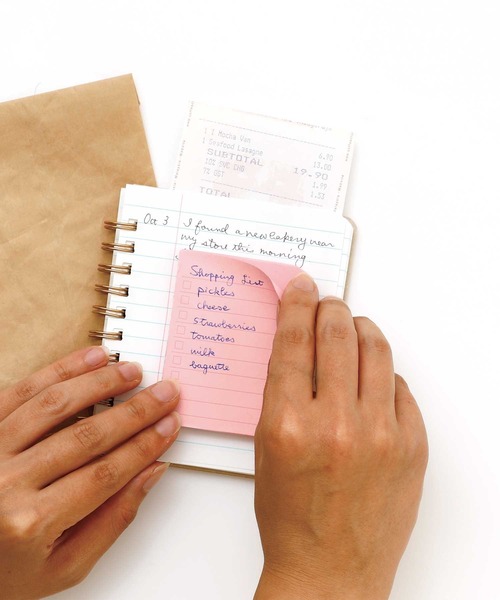 1 Mocha Van 6.90
1 Seafood Lasagne 13.00
SUBTOTAL 19.90
10% SVC CHG 1.99
7% GST 1.53
TOTAL
Oct 3 I found a new bakery near
my store this morning
Shopping List
pickles
cheese
strawberries
tomatoes
milk
baguette